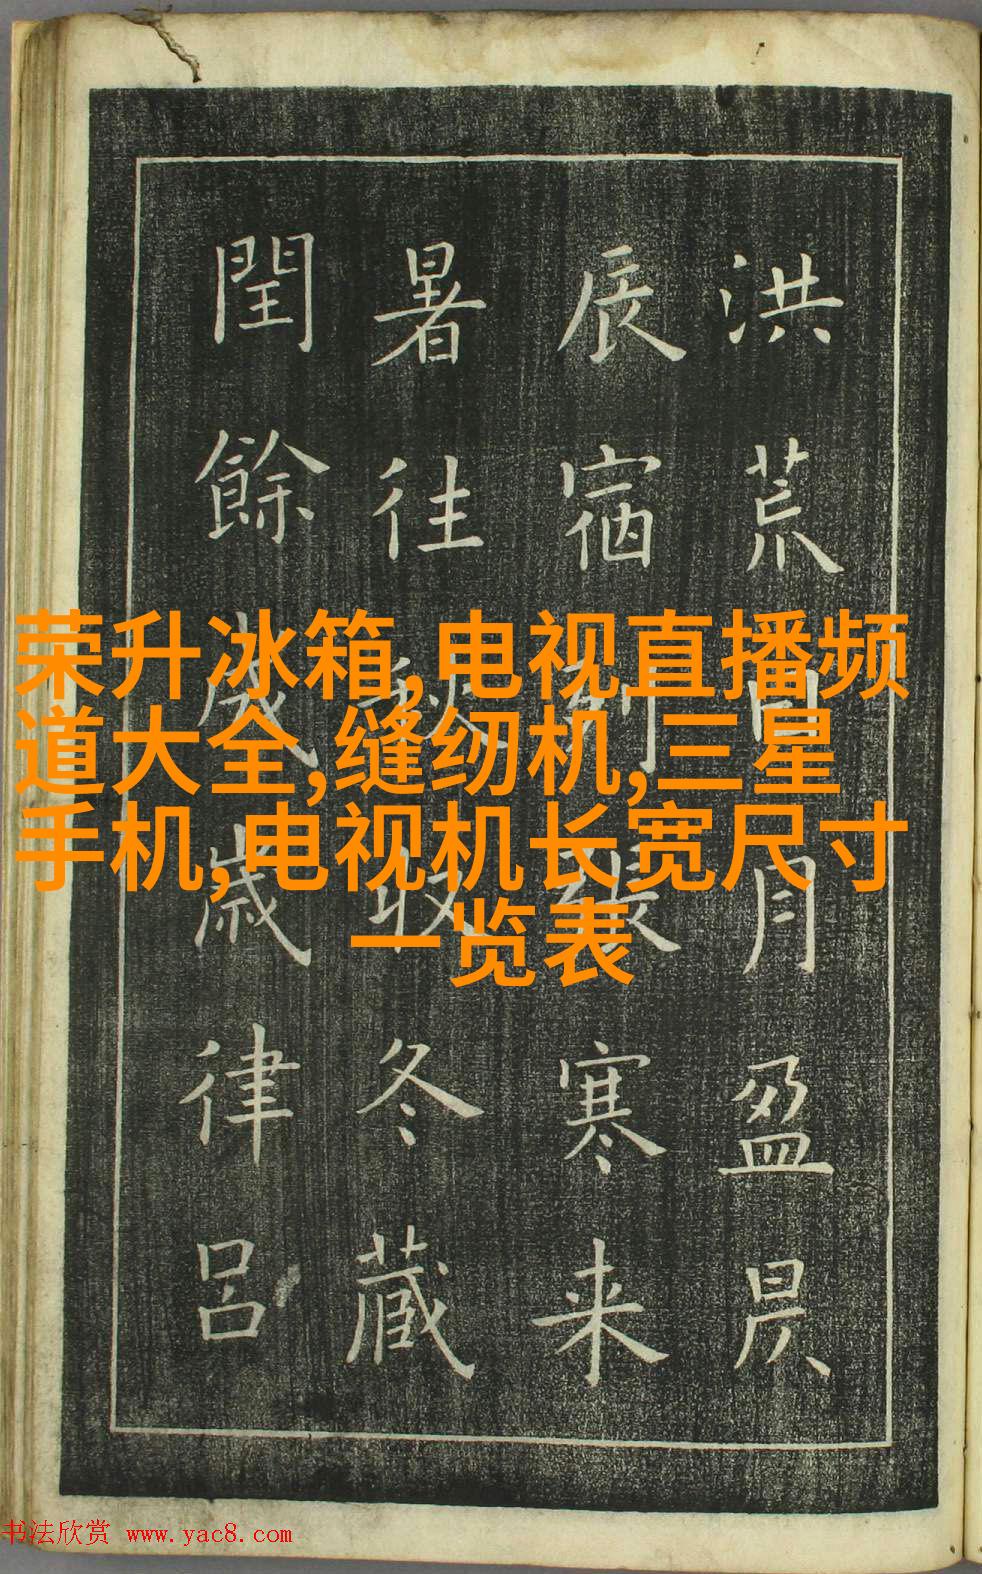 洪荒日月盈昃
辰宿列張寒来
暑往秋收冬藏
閏餘成歲律呂
荣升冰箱,电视直播频
道大全,缝纫机,三星
手机,电视机长宽尺寸
一览表
书法欣赏 www.yac8.com